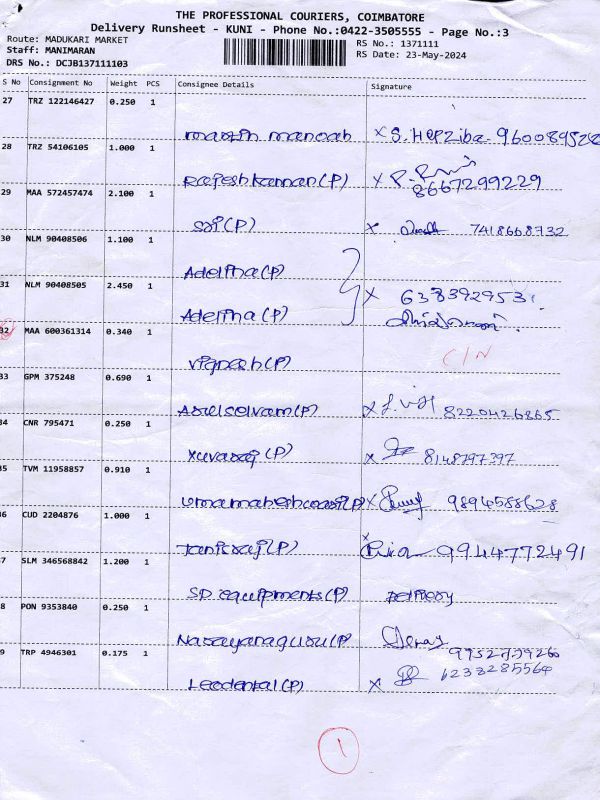 THE PROFESSIONAL COURIERS, COIMBATORE
Delivery Runsheet - KUNI - Phone No.:0422-3505555 - Page No.:3
Route: MADUKARI MARKET
RS No.: 1371111
Staff: MANIMARAN
RS Date: 23-May-2024
DRS No.: DCJB137111103
S No Consignment No Weight PCS Consignee Details Signature
27 TRZ 122146427 0.250 1
Martin manoah x S. Hepziba. 960089528
28 TRZ 54106105 1.000 1
Rajesh kannan(P) x 8667299229
29 MAA 572457474 2.100 1
Sri(P) x 7418668732
30 NLM 90408506 1.100 1
Adeltha(P)
31 NLM 90408505 2.450 1
x 6383929531
Adeltha(P)
32 MAA 600361314 0.340 1
Vignesh(P) C/N
33 GPM 375248 0.690 1
Arulselvam(P) x 8220426865
34 CNR 795471 0.250 1
Yuvaraj(P) x 8148797397
35 TVM 11958857 0.910 1
Umamaheshwari(P) x 9894588628
36 CUD 2204876 1.000 1
(P) x 9944772491
37 SLM 346568842 1.200 1
SD equipments(P)
38 PON 9353840 0.250 1
Narayanaguru(P)
9952739266
39 TRP 4946301 0.175 1
6238285564
Leodental(P) x
1